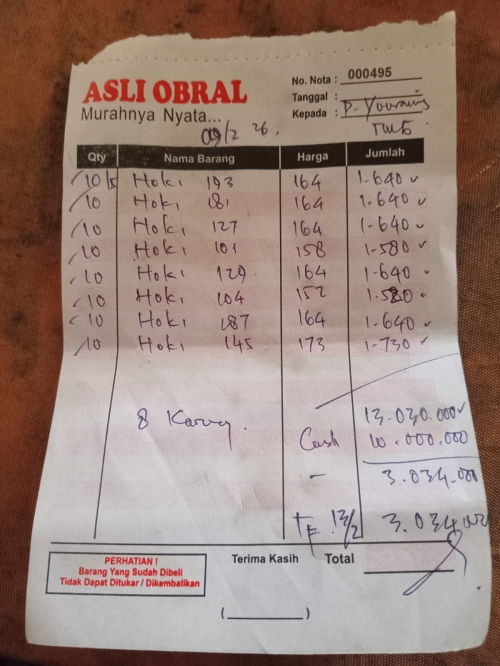 ASLI OBRAL
Murahnya Nyata...
No. Nota : 000495
Tanggal :
Kepada :
09/2 26.
Qty Nama Barang Harga Jumlah
10 Hoki 193 164 1.640
10 Hoki 181 164 1.640
10 Hoki 127 164 1.640
10 Hoki 101 158 1.580
10 Hoki 129 164 1.640
10 Hoki 104 152 1.520
10 Hoki 187 164 1.640
10 Hoki 145 173 1.730
13.030.000
8 Karung. Cash 10.000.000
- 3.034.000
TF 13/2 3.034.000
PERHATIAN !
Barang Yang Sudah Dibeli
Tidak Dapat Ditukar / Dikembalikan
Terima Kasih Total